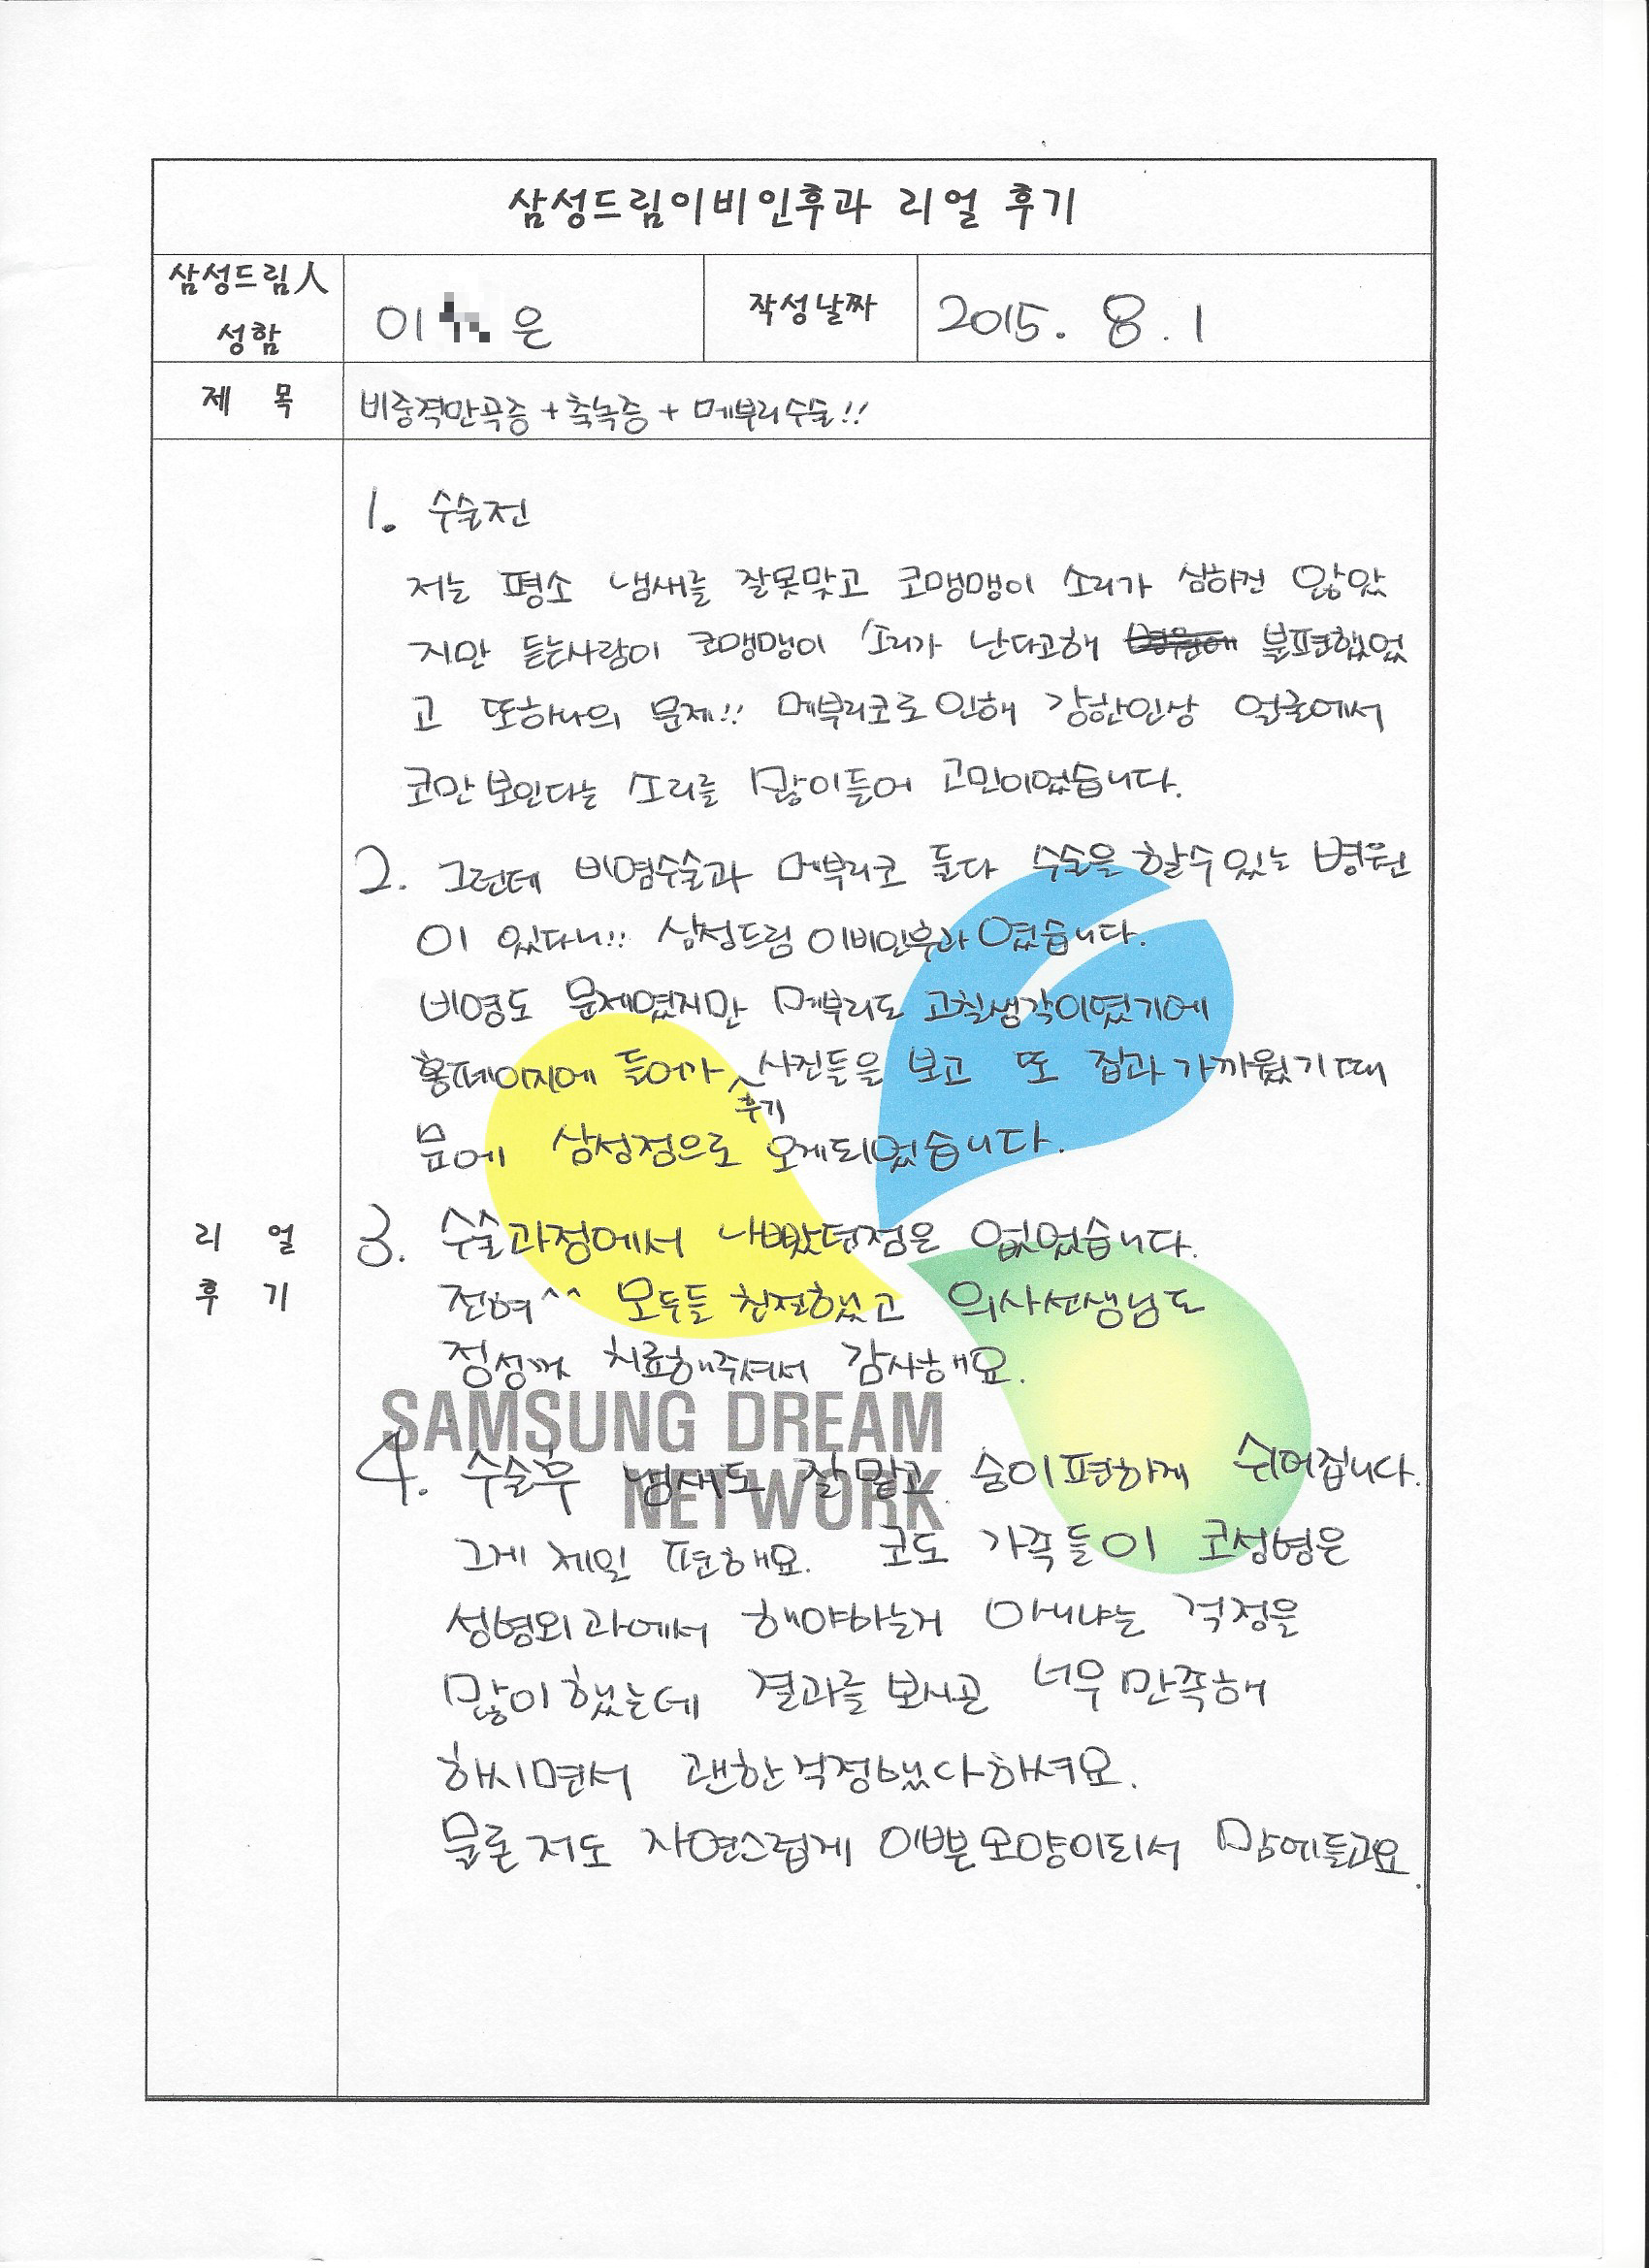 삼성드림이비인후과 리얼 후기
삼성드림人
성함
이 은
작성날짜
2015. 8. 1
제 목
비중격만곡증 + 축농증 + 메부리수술!!
1. 수술전
저는 평소 냄새를 잘못맞고 코맹맹이 소리가 심하건 않았
지만 듣는사람이 코맹맹이 소리가 난다고해 불편했었
고 또하나의 문제!! 메부리코로 인해 강한인상 얼굴에서
코만 보인다는 소리를 많이들어 고민이었습니다.
2. 그런데 비염수술과 메부리코 둘다 수술을 할수있는 병원
이 있다니!! 삼성드림 이비인후과 였습니다.
비염도 문제였지만 메부리도 고칠생각이였기에
홈페이지에 들어가 후기 사진들을 보고 또 집과 가까웠기 때
문에 삼성점으로 오게되었습니다.
리 얼
후 기
3. 수술과정에서 나빴던점은 없었습니다.
전혀^^ 모두들 친절했고 의사선생님도
정성껏 치료해주셔서 감사해요.
SAMSUNG DREAM
NETWORK
4. 수술후 냄새도 잘 맡고 숨이편하게 쉬어집니다.
그게 제일 편해요. 코도 가족들이 코성형은
성형외과에서 해야하는거 아니냐는 걱정을
많이했는데 결과를 보시곤 너무 만족해
하시면서 괜한걱정했다하셔요.
물론 저도 자연스럽게 이쁜모양이되서 맘에들고요.